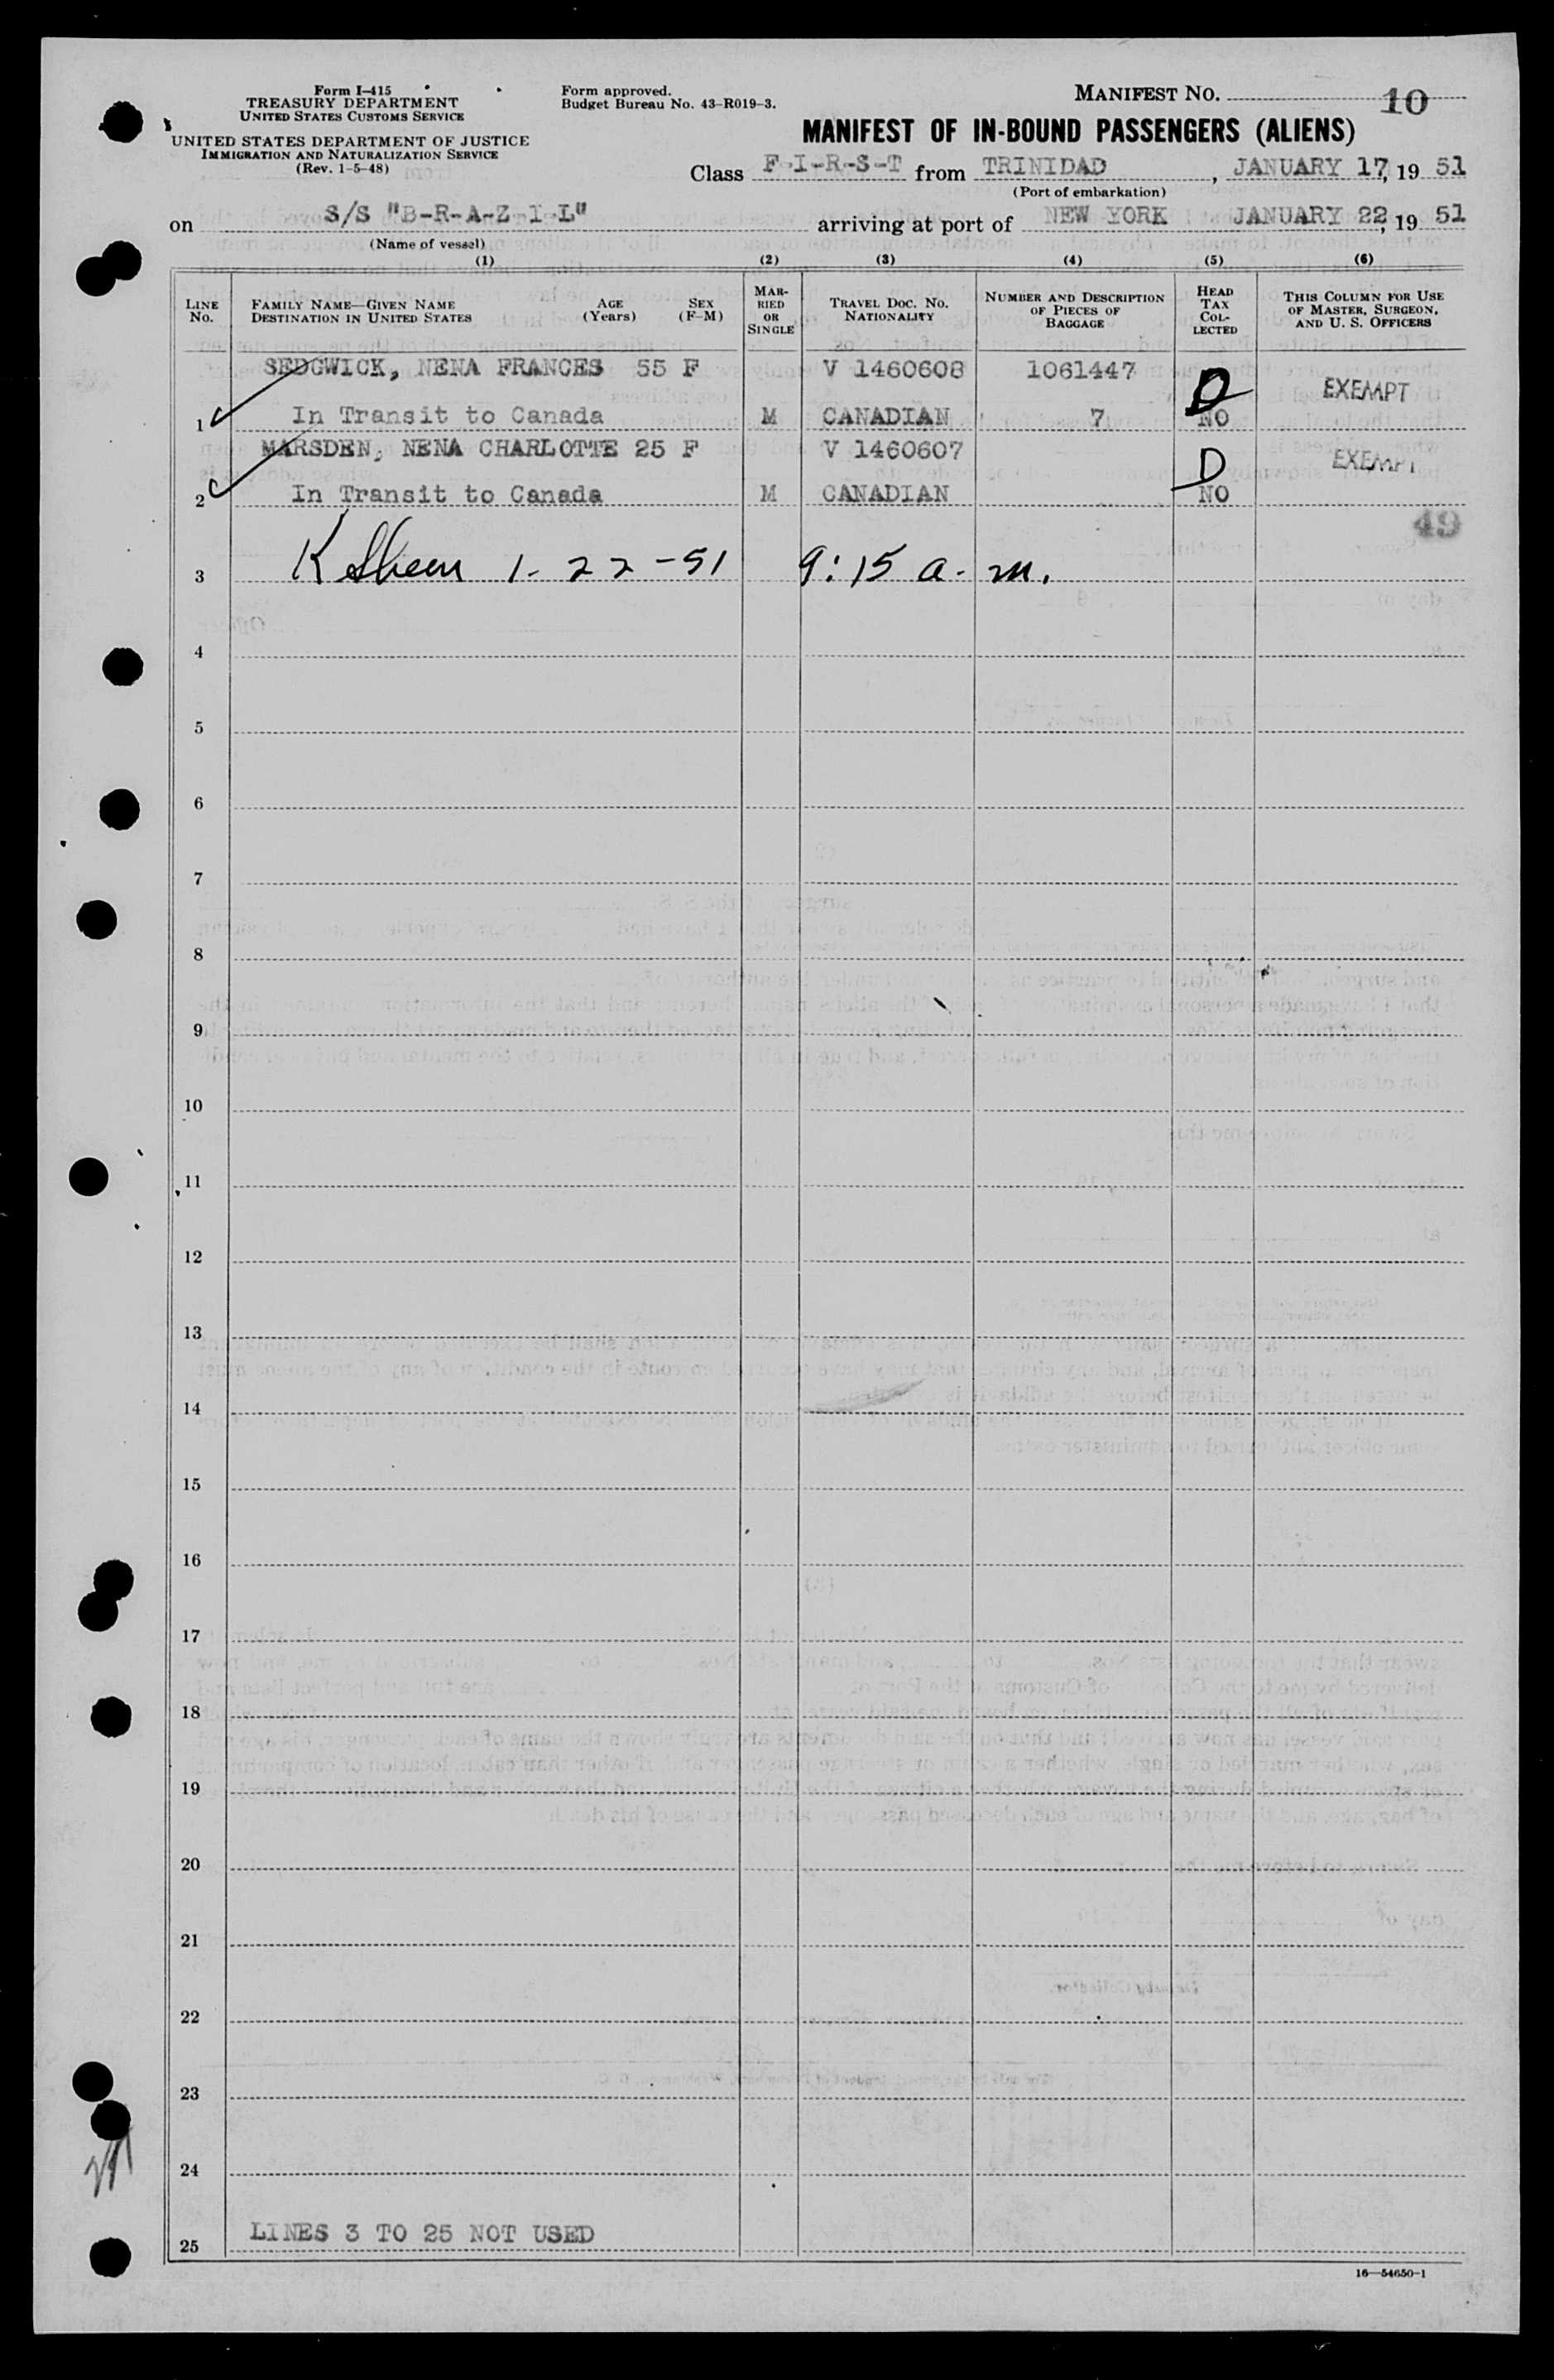 Form I-415
TREASURY DEPARTMENT
UNITED STATES CUSTOMS SERVICE
UNITED STATES DEPARTMENT OF JUSTICE
IMMIGRATION AND NATURALIZATION SERVICE
(Rev. 1-5-48)
Form approved.
Budget Bureau No. 43-R019-3.
MANIFEST NO. 10
MANIFEST OF IN-BOUND PASSENGERS (ALIENS)
Class F-I-R-S-T from TRINIDAD, JANUARY 17, 19 51
(Port of embarkation)
on S/S "B-R-A-Z-I-L" arriving at port of NEW YORK JANUARY 22, 19 51
(Name of vessel)
(1) (2) (3) (4) (5) (6)
LINE No. FAMILY NAME—GIVEN NAME DESTINATION IN UNITED STATES AGE (Years) SEX (F-M) MARRIED OR SINGLE TRAVEL DOC. NO. NATIONALITY NUMBER AND DESCRIPTION OF PIECES OF BAGGAGE HEAD TAX COLLECTED THIS COLUMN FOR USE OF MASTER, SURGEON, AND U. S. OFFICERS
SEDGWICK, NENA FRANCES 55 F V 1460608 1061447 D EXEMPT
1 In Transit to Canada M CANADIAN 7 NO
MARSDEN, NENA CHARLOTTE 25 F V 1460607 D EXEMPT
2 In Transit to Canada M CANADIAN NO
49
3 K Sheen 1-22-51 9:15 a.m.
4
5
6
7
8
9
10
11
12
13
14
15
16
17
18
19
20
21
22
23
24
25 LINES 3 TO 25 NOT USED
16—54650-1